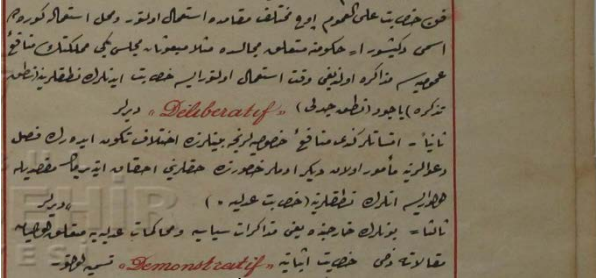 فن خطابت على العموم اوچ مختلف مقامده استعمال اولنور ومحل استعمال كوره
اسمى دكيشور ا= حكومته متعلق مجالسده مثلا مبعوثان مجلسى كبى مملكتك منافع
عموميه سى مذاكره اولنديغى وقت استعمال اولنورايسه خطابت ايدنلرك نطقلرينه (نطق
تذكره) ياخود (نطق جدلى) «Déliberatif» ديرلر
ثانياً = انسانلر كندى منافع خصوصيه لرنجه بينلرنده اختلاف تكون ايده رك فصل
دعوالرينه مأمور اولان ديكر آدملر حضورنده حقلرينى احقاق ايتديرمك مقصديله
ايسه انلرك نطقلرينه (خطابت عدليه) ديرلر
ثالثاً = بونلرك خارجنده يعنى مذاكرات سياسيه ومحاكمات عدليه يه متعلق
مقالاته دخى خطابت اثباتيه «Demonstratif» تسميه اولنور